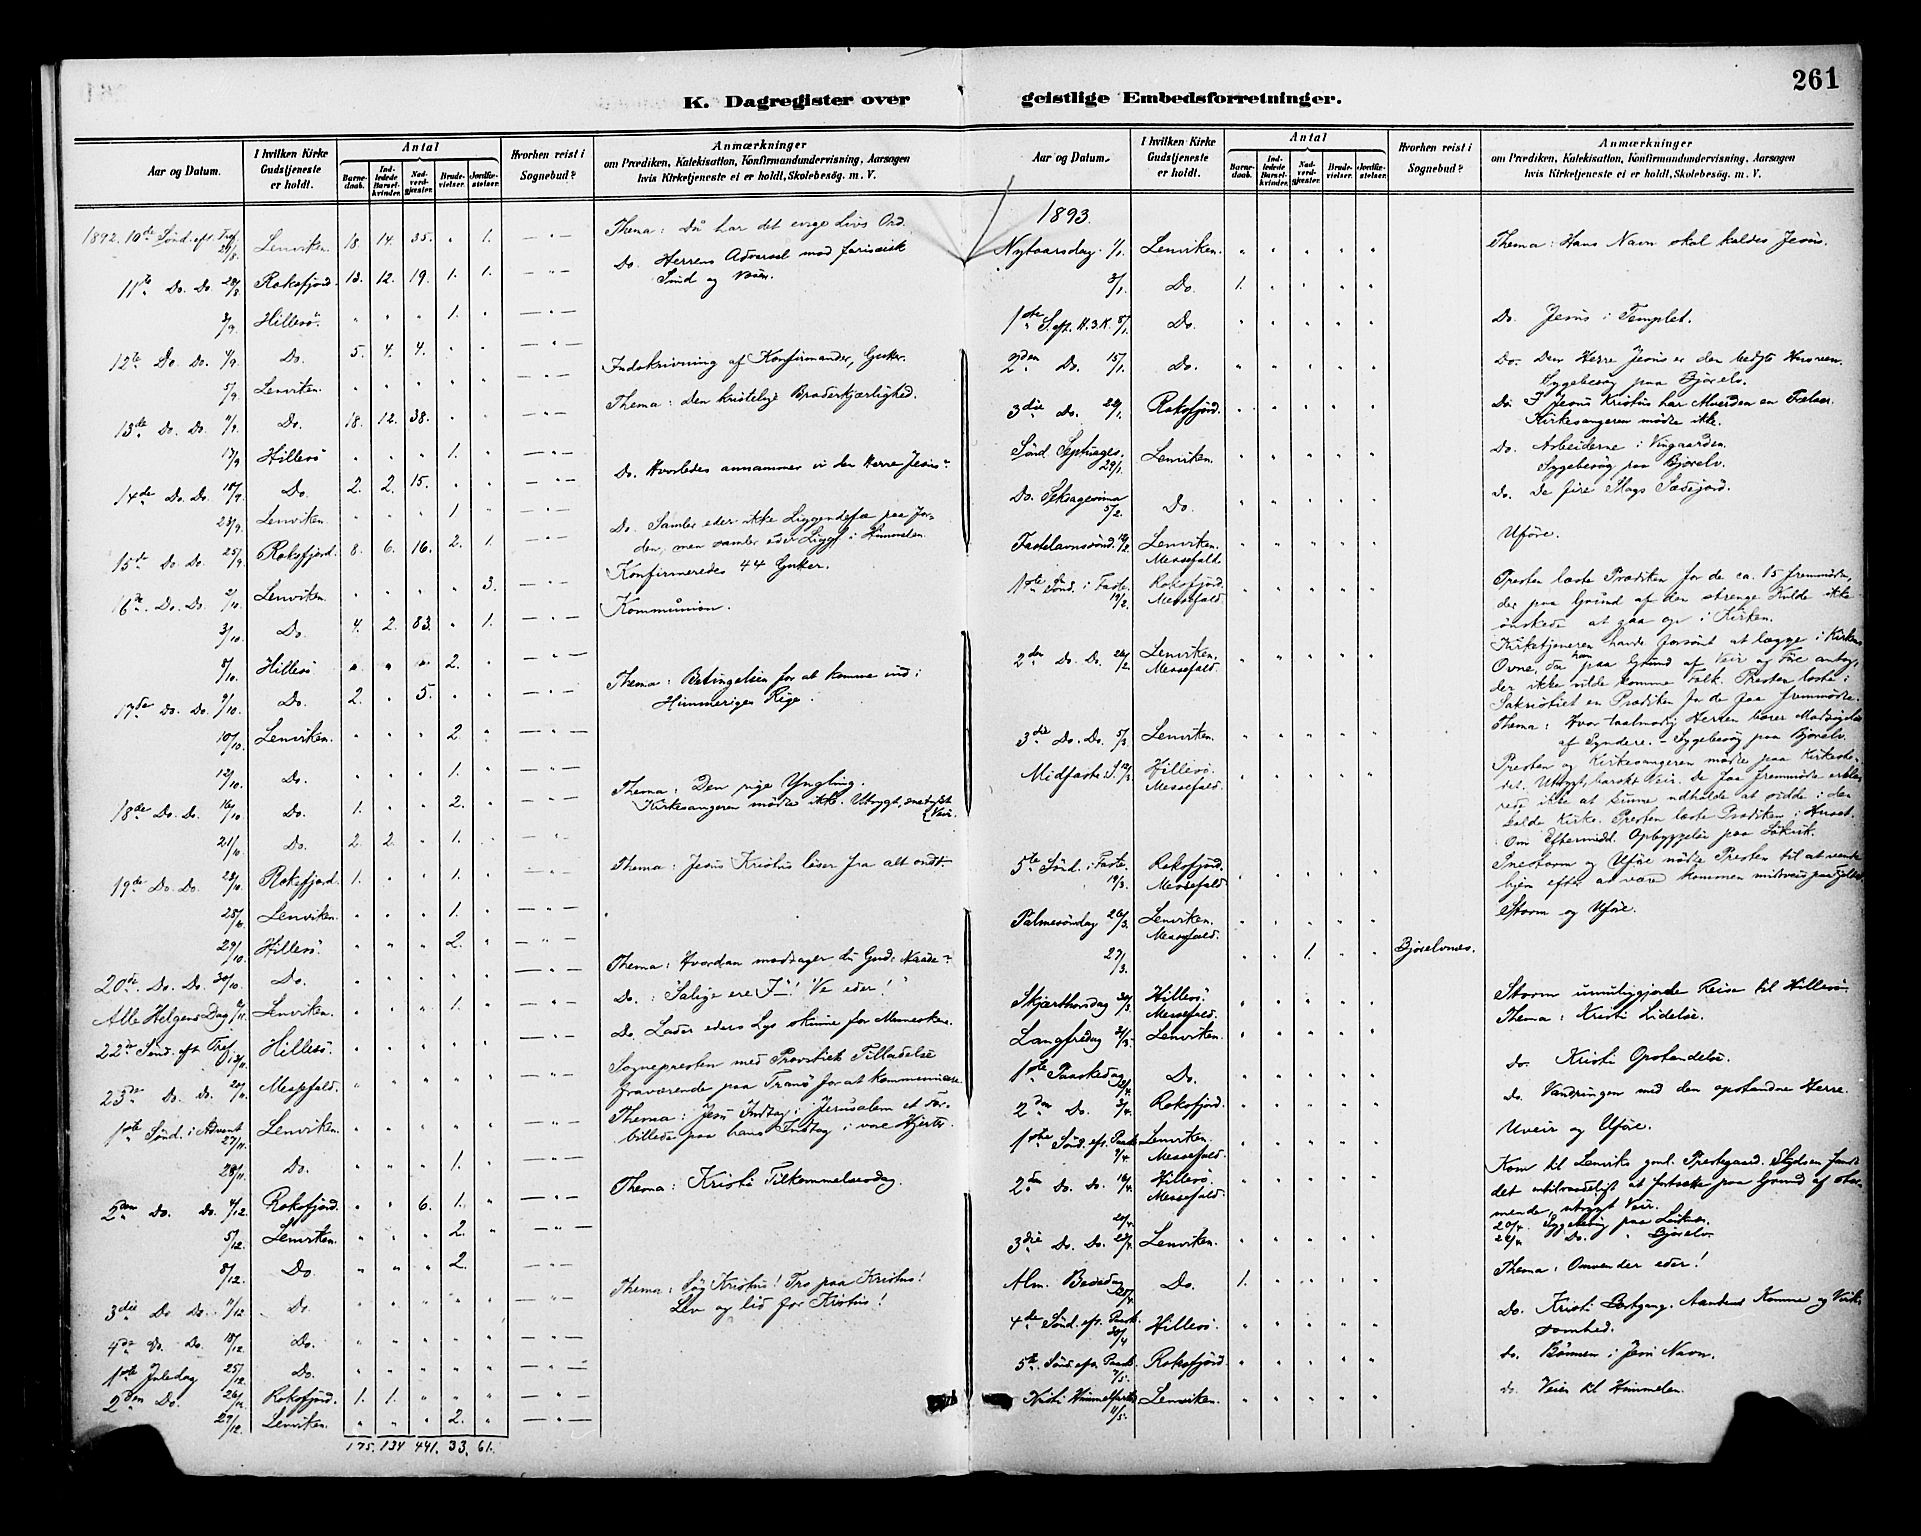 K. Dagregister over geistlige Embedsforretninger.
261
Aar og Datum.
I hvilken Kirke Gudstjeneste er holdt.
Antal
Barnedaab.
Indledede Barselkvinder.
Nadverdgjester.
Brudevielser.
Jordfæstelser.
Hvorhen reist i Sognebud?
Anmærkninger
om Prædiken, Katekisation, Konfirmandundervisning, Aarsagen
hvis Kirketjeneste ei er holdt, Skolebesøg. m. V.
1892. 10de Sønd. eft. Tref. 21/8. Lenviken. 18. 14. 35. " 1. — " — Thema: Du har det evige Livs Ord.
11te Do. Do. 28/8 Roksfjord. 13. 12. 19. 1. 1. — " — Do. Herrens Advarsel mod farisæisk
Sind og Væsen.
3/9. Hillesö. " " " 1. " — " —
12te Do. Do. 4/9. Do. 5. 4. 4. " " — " —
5/9. Lenviken. " " " " " — " — Indskrivning af Konfirmander, Gutter.
13de Do. Do. 11/9. Do. 18. 12. 38. " " — " — Thema: Den kristelige Broderkjærlighed.
17/9 Hillesö " " " 1. " — " —
14de Do. Do. 18/9. Do. 2. 2. 15. " " — " — Do. Hvorledes annammer vi den Herre Jesus?
23/9. Lenviken. " " " 1 " — " —
15de Do. Do. 25/9 Roksfjord. 8. 6. 16. 2. 1. — " — Do. Samler eder ikke Liggendefæ paa Jorden,
men samler eder Ligg. i Himmelen.
16de Do. Do. 2/10. Lenviken. " " " " 3. — " — Konfirmeredes 44 Gutter.
3/10. Do. 4. 2. 83. " 1. — " — Kommunion.
8/10. Hillesö " " " 2. " — " —
17de Do. Do. 9/10. Do. 2. " 5. " " — " — Thema: Betingelsen for at komme ind i
Himmeriges Rige.
10/10. Lenviken. " " " 2. " — " —
12/10 Do. " " " 1. " — " —
18de Do. Do. 16/10 Do. 1. " " 2. " — " — Thema: Den rige Yngling.
Kirkesangeren mødte ikke. Utrygt, snetykt
Veir.
21/10. Do. 2. 2. " 1. " — " —
19de Do. Do. 23/10. Roksfjord. 1. " " 1. " — " — Thema: Jesus Kristus løser fra alt ondt
25/10. Lenviken. " " " 1. " — " —
29/10. Hillesö " " " 2. " — " —
20de Do. Do. 30/10. Do. " " " " " — " — Thema: Hvordan modtager du Guds Naade?
Alle Helgens Dag 6/11. Lenviken. " " " 1. " — " — Do.: "Salige ere I—! Ve eder!"
22de Sønd. eft Tref. 13/11. Hillesö. " " " " " — " — Do. Lader eders Lys skinne for Menneskene.
23de Do. Do. 20/11. Messefald. " " " " " — " — Sognepresten med Provstiets Tilladelse
fraværende paa Tranö for at kommunicere.
1ste Sønd. i Advent 27/11. Lenviken. " " " " " — " — Thema: Jesu Indtog i Jerusalem et Forbillede
paa hans Indtog i vore Hjerter.
28/11. Do. " " " 1. " — " —
2den Do. Do. 4/12. Roksfjord. " " 6. 1. " — " — Thema: Kristi Tilkommelsesdag.
5/12. Lenviken. " " " 2. " — " —
8/12. Do. " " " 2. " — " —
3die Do. Do. 11/12 Do. " " " " " — " — Thema: Søg Kristus! Tro paa Kristus!
Lev og lid for Kristus!
4de Do. Do. 18/12. Do. " " " " " — " —
1ste Juledag 25/12. Do. " " " " " — " —
2den Do. 26/12. Roksfjord. 1. 1. " " " — " —
29/12. Lenviken. " " " 2. " — " —
175. 134 441. 33. 61.
Aar og Datum.
I hvilken Kirke Gudstjeneste er holdt.
Antal
Barnedaab.
Indledede Barselkvinder.
Nadverdgjester.
Brudevielser.
Jordfæstelser.
Hvorhen reist i Sognebud?
Anmærkninger
om Prædiken, Katekisation, Konfirmandundervisning, Aarsagen
hvis Kirketjeneste ei er holdt, Skolebesøg. m. V.
1893.
Nytaarsdag 1/1. Lenviken. " " " " " Thema: Hans Navn skal kaldes Jesus.
3/1. Do. 1. " " " "
1ste S. eft. H.3.K. 8/1. Do. " " " " " Do. Jesus i Templet.
2den Do. 15/1. Do. " " " " " Do. Den Herre Jesus er den bedste Husven.
Sygebesøg paa Bjorelv.
3die Do. 22/1. Roksfjord. " " " " " Do. I Jesus Kristus har Alverden en Frelser.
Kirkesangeren mødte ikke.
Sønd. Septuages. 29/1. Lenviken. " " " " " Do. Arbeiderne i Vingaarden.
Sygebesøg paa Bjorelv.
Do. Seksagesima 5/2. Do. " " " " " Do. De fire Slags Sædejord.
Fastelavnssönd. 12/2. Lenviken. Messefald " " " " " Uföre.
1ste Sönd. i Faste 19/2. Roksfjord. Messefald. " " " " " Presten læste Prædiken for de ca. 15 fremmødte,
der paa Grund af den strenge Kulde ikke
ønskede at gaa op i Kirken.
2den Do. Do. 26/2. Lenviken. Messefald. " " " " " Kirketjeneren havde forsømt at lægge i Kirkens
Ovne, da han paa Grund af Veir og Före antog,
der ikke vilde komme Folk. Presten læste i
Sakristiet en Prædiken for de faa fremmødte.
3die Do. Do. 5/3. Lenviken. " " " " " Thema: Hvor taalmodig Herren bærer Modsigelse
af Syndere. – Sygebesøg paa Bjorelv.
Midfaste S. 12/3. Hillesö. Messefald. " " " " " Presten og Kirkesangeren mødte paa Kirkestedet.
Utrygt, barskt Veir. De faa fremmødte erklærede
ikke at kunne udholde at sidde i den
kolde Kirke. Presten læste Prædiken i Huset.
Om Eftermidd. Opbyggelse paa
5te Sönd. i Faste 19/3. Roksfjord. Messefald " " " " " Snestorm og Uföre nødte Presten til at vende
hjem efter at være kommen midtveis paa Fjeldet.
Palmesöndag 26/3. Lenviken. Messefald. " " " " " Storm og Uföre.
27/3. " " 1. " " Bjorelvnes.
Skjærthorsdag 30/3. Hillesö. Messefald. " " " " " Storm umuliggjorde Reise til Hillesö.
Langfredag 31/3. Lenviken. " " " " " Thema: Kristi Lidelse.
1ste Paaskedag 2/4. Do. " " " " " Do. Kristi Opstandelse.
2den Do. 3/4. Roksfjord. " " " " " Do. Vandringen med den opstandne Herre.
1ste Sönd. eft. Paask. 9/4. Lenviken. Messefald. " " " " " Uveir og Uföre.
2den Do. Do. 16/4. Hillesö. Messefald. " " " " " Kom til Lenviks gml. Prestegaard. Skydsen fandt
det utilraadeligt at fortsætte paa Grund af stormende,
utrygt Veir.
20/4. 20/4. Sygebesøg paa
3die Do. Do. 23/4. Lenviken. " " " " " Do. " Bjorelv.
Thema: Omvender eder!
Alm. Bededag 28/4. Do. 1. " " " " Do. Kristi Bortgang. Aandens Komme og Virksomhed.
4de Sönd. eft. Paask. 30/4 Hillesö. " " " " "
5te Sönd. eft. Paask. 7/5. Roksfjord. " " " " " Do. Bönnen i Jesu Navn.
Kristi Himmelfartsd. 11/5. Lenviken. " " " " " Do. Veien til Himmelen.